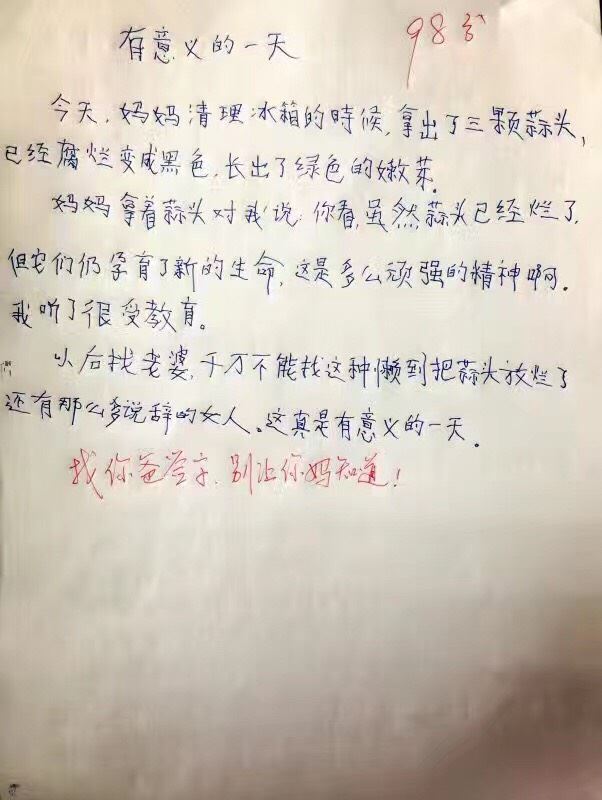 有意义的一天
98分
今天,妈妈清理冰箱的時候,拿出了三颗蒜头,
已经腐烂变成黑色,长出了绿色的嫩芽。
妈妈拿着蒜头对我说:你看,虽然蒜头已经烂了,
但它们仍孕育了新的生命,这是多么顽强的精神啊。
我听了很受教育。
以后找老婆,千万不能找这种懒到把蒜头放烂了
还有那么多说辞的女人。这真是有意义的一天。
找你爸签字,别让你妈知道!